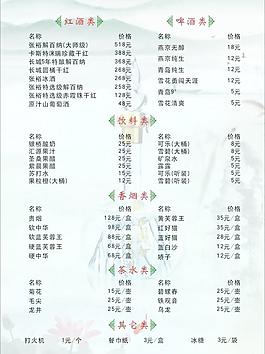 红酒类
名称 价格
张裕解百纳(大师级) 518元
卡斯特沫瑞珍藏干红 388元
长城5年特酿解百纳 288元
长城圆桶干红 268元
张裕冰酒 268元
张裕特选级解百纳 238元
张裕特选雷司令干红 188元
原汁山葡萄酒 48元
啤酒类
名称 价格
燕京无醇 18元
燕京纯生 12元
青岛纯生 12元
雪花勇闯天涯 12元
青岛9° 5元
雪花清爽 5元
饮料类
名称 价格
银桥酸奶 25元
汇源果汁 25元
圣桑果醋 25元
紫晨果醋 25元
苏打水 15元
果粒橙(大桶) 12元
名称 价格
可乐(大桶) 12元
雪碧(大桶) 12元
矿泉水 5元
露露 5元
可乐(听装) 5元
雪碧(听装) 5元
香烟类
名称 价格
贵烟 128元/盒
软中华 100元/盒
软蓝芙蓉王 80元/盒
硬蓝芙蓉王 68元/盒
硬中华 68元/盒
名称 价格
黄芙蓉王 35元/盒
红好猫 35元/盒
蓝好猫 28元/盒
蓝白沙 12元/盒
娇子 12元/盒
茶水类
名称 价格
菊花 15元/壶
毛尖 25元/壶
龙井 25元/壶
名称 价格
碧螺春 25元/壶
铁观音 25元/壶
乌龙 25元/壶
其它类
打火机 1元/个 餐巾纸 3元/盒 冰糖 3元/袋